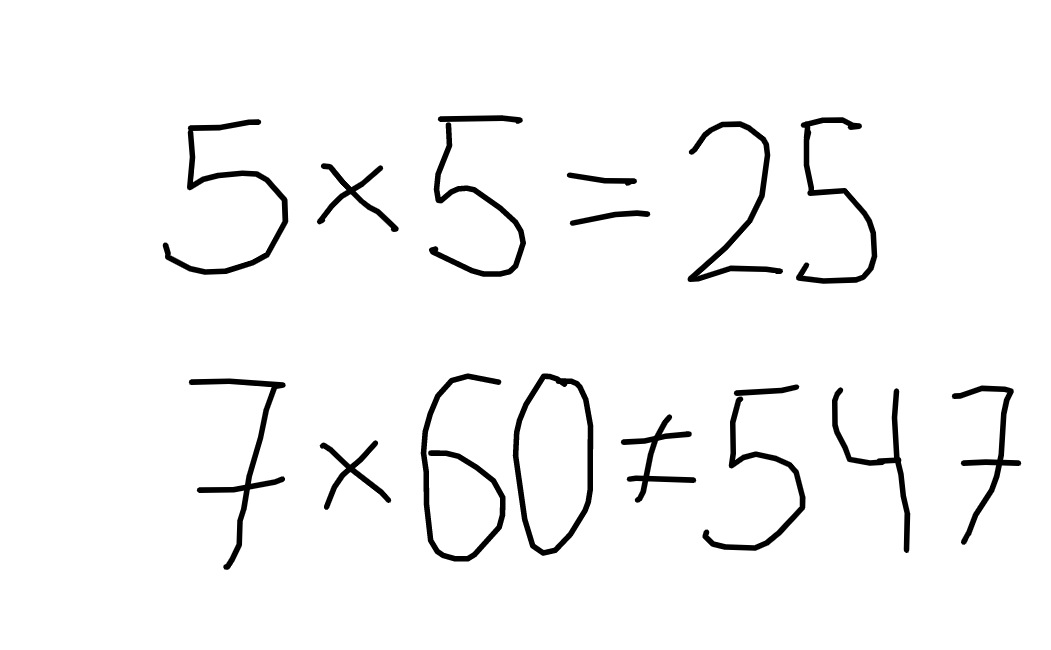 5×5=25
7×60≠547